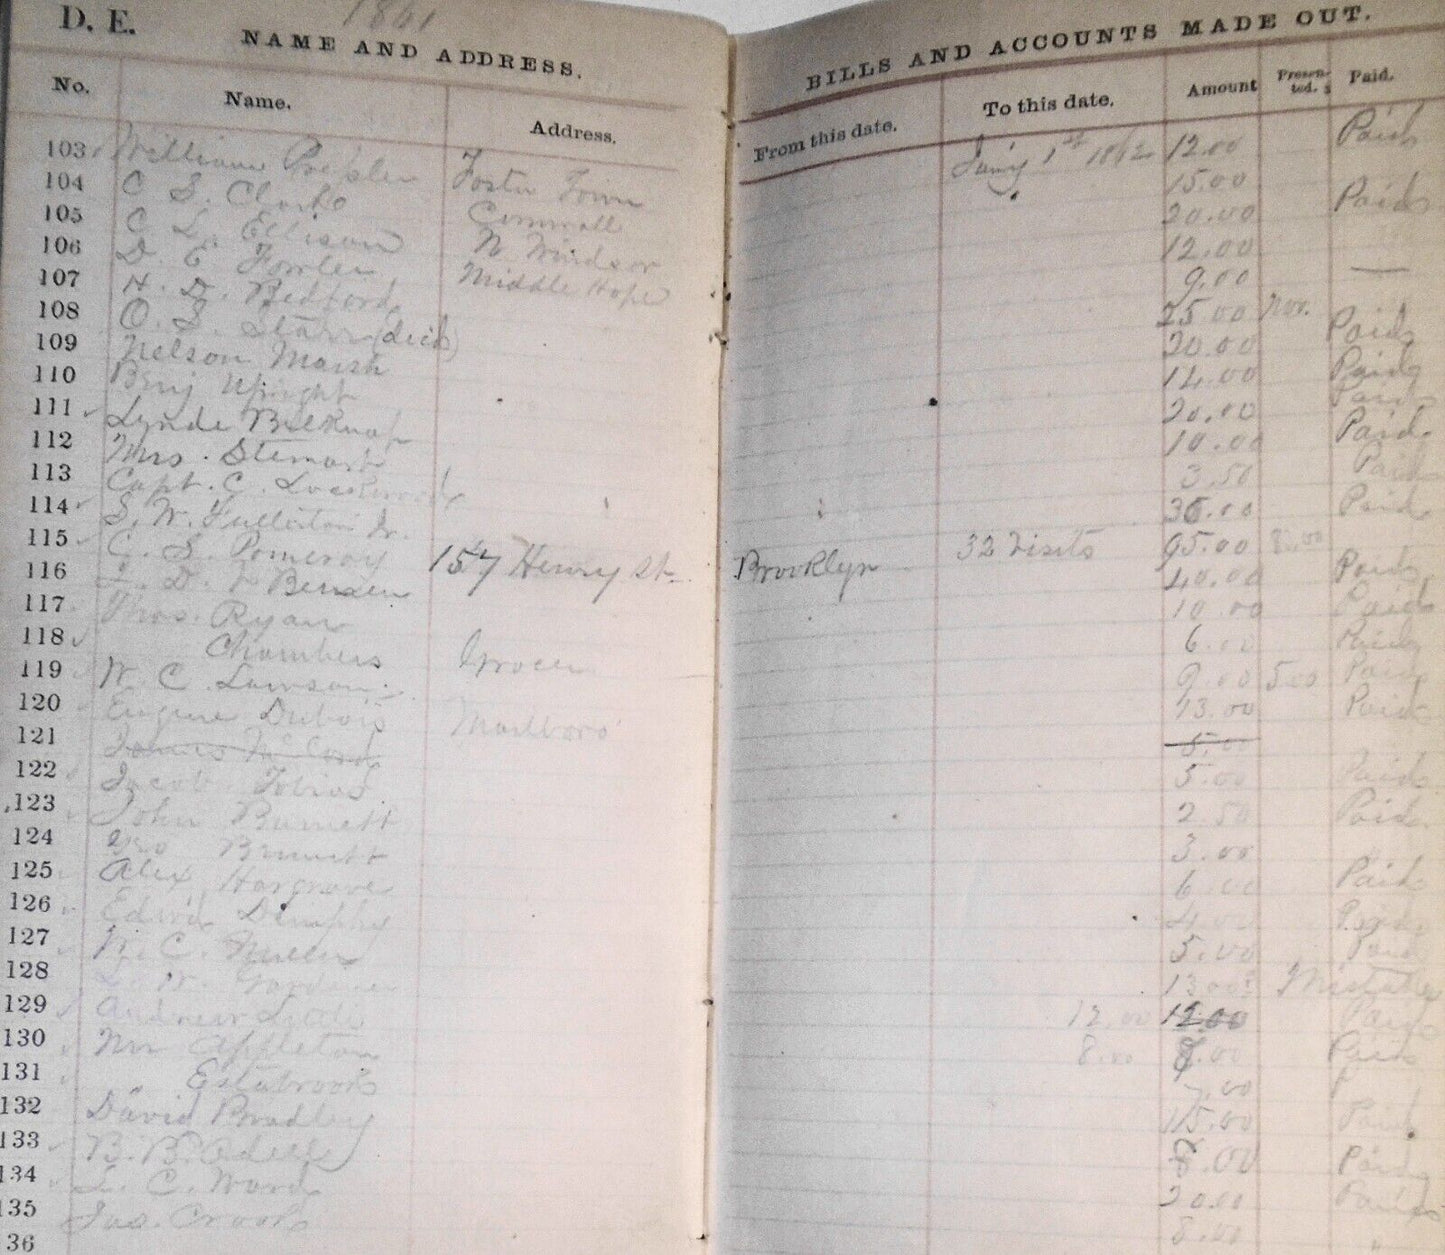 D. E. 1861
NAME AND ADDRESS.
No. Name. Address.
103 William Foster Town
104 C S. Clarke Cornwall
105 C L. Ellison N Windsor
106 D. E Fowler Middle Hope
107 H. D. Bedford
108 O. S. Starr (decd)
109 Nelson Marsh
110 Benj Wright
111 Lynde Belknap
112 Mrs. Stewart
113 Capt. C. Lockwood
114 S. W. Fullerton Jr.
115 C. S. Pomeroy 157 Henry St.
116
117 Thos. Ryan
118 Chambers Grocer
119 W. C. Lawson
120 Eugene Dubois Marlboro
121 James McCord
122 Jacob Tobias
123 John Barnett
124 Geo Barnett
125 Alex Hargrave
126 Edwd Dempsey
127 W. C. Miller
128 W. Gardiner
129 Andrew Little
130 Mr Appleton
131 Estabrook
132 David Bradley
133 B. B. Odell
134 C. Ward
135 Jas. Crooks
36
BILLS AND ACCOUNTS MADE OUT.
From this date. To this date. Amount Presented. Paid.
Jany 1st 1862 12.00 Paid
15.00
20.00 Paid
12.00
9.00 —
25.00 nov.
20.00 Paid
12.00 Paid
20.00 Paid
10.00 Paid
3.50 Paid
35.00 Paid
Brooklyn 32 Visits 95.00
40.00 Paid
10.00 Paid
6.00 Paid
9.00 5.00 Paid
13.00 Paid
5.00
5.00 Paid
2.50 Paid
3.00 "
6.00 Paid
4.00 Paid
5.00 Paid
13.00 Mistake
12.00 12.00 Paid
8.00 8.00 Paid
7.00
15.00 Paid
8.00 Paid
20.00 Paid
8.00 "